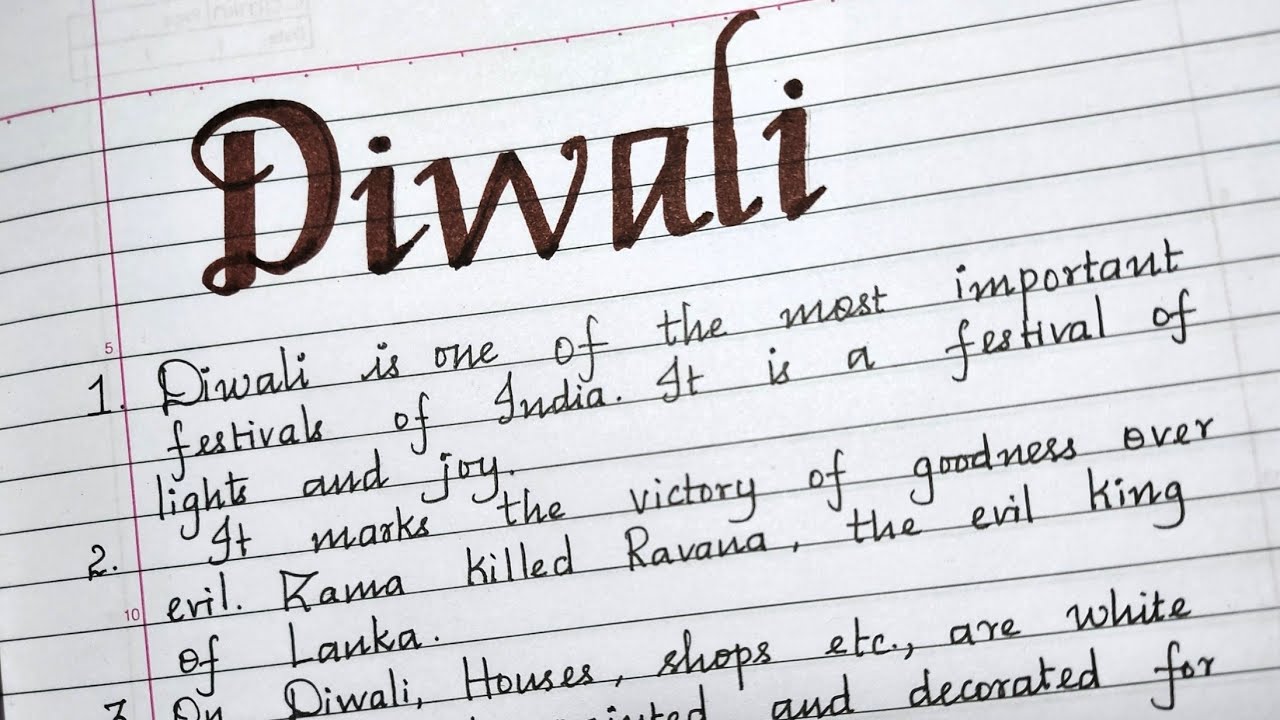 Diwali
5
1. Diwali is one of the most important
festivals of India. It is a festival of
lights and joy.
2. It marks the victory of goodness over
evil. Rama killed Ravana, the evil King
10
of Lanka.
3. On Diwali, Houses, shops etc., are white
and decorated for